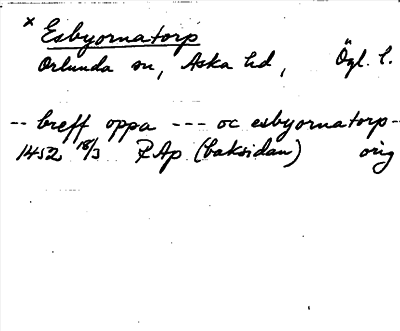 × Esbyornatorp
Orlunda sn, Aska hd, Ögl. l.
-- breff oppa --- oc esbyornatorp--
1452 18/3 RAp (baksidan) orig